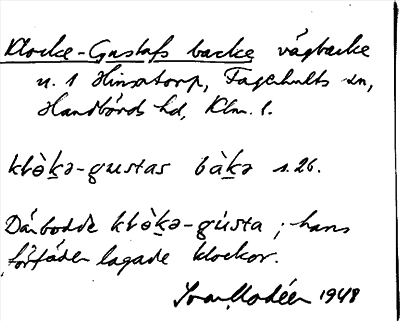 Klocke-Gustafs backe vägbacke
u. 1 Hinsatorp, Fagerhults sn,
Handbörds hd, Klm. l.
klòḵə-gustas bàḵə s. 26.
Där bodde klòḵə-gùsta; hans
förfäder lagade klockor.
Ivar Modéer 1948